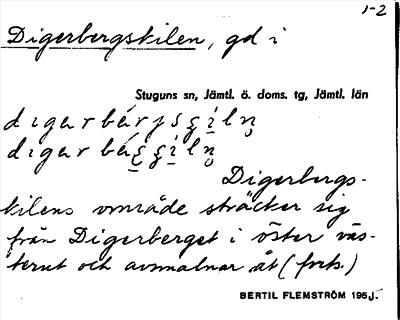 1-2
Digerbergskilen, gd i
Stuguns sn, Jämtl. ö. doms. tg, Jämtl. län
digarbárjsgiln̥
digar bá
Digerbergs-
kilens område sträcker sig
från Digerberget i öster väs-
terut och avsmalnar åt (forts.)
BERTIL FLEMSTRÖM 1955.